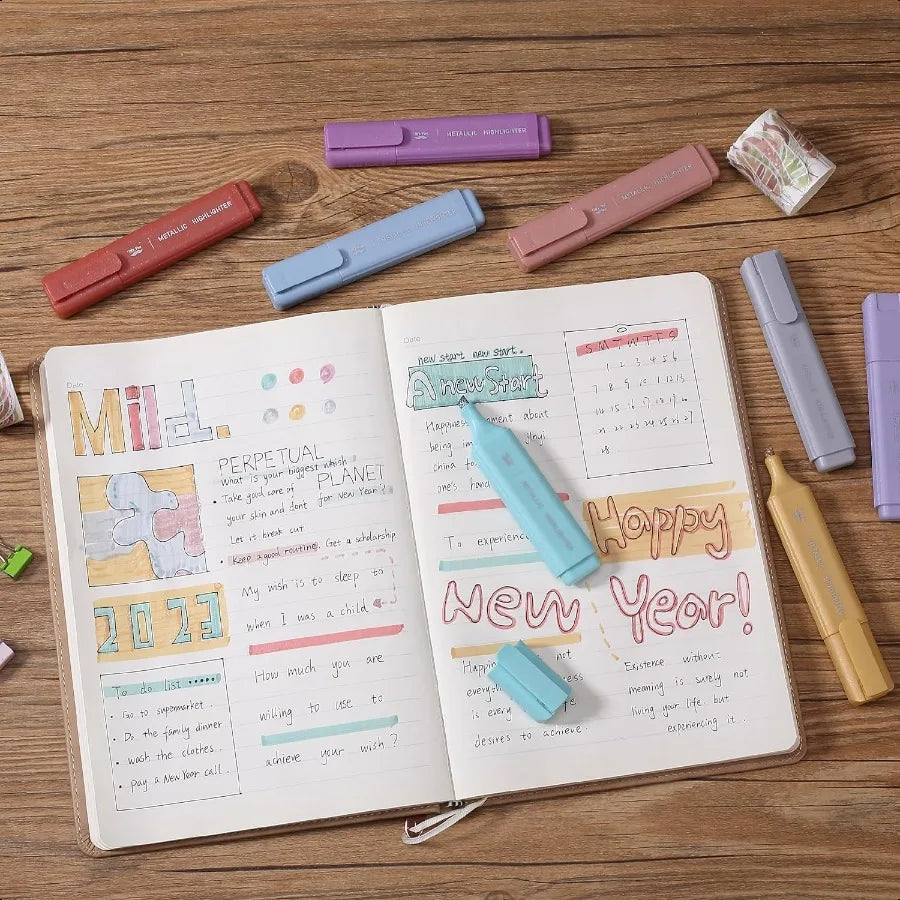 METALLIC HIGHLIGHTER
METALLIC HIGHLIGHTER
METALLIC HIGHLIGHTER
METALLIC HIGHLIGHTER
Date
Mild.
PERPETUAL
PLANET
What is your biggest which
for New Year?
• Take good care of
your skin and don't
Let it break out
• Keep a good routine. Get a scholarship
My wish is to sleep to
when I was a child
2023
To do list •••••
• Go to supermarket..
• Do the family dinner
• wash the clothes..
• pay a New Year call..
How much you are
willing to use to
achieve your wish?
Date
new start new start.
A new Start
Happiness about
being
china
one's
To experience
S M T W T F S
1 2 3 4 5 6
7 8 9 10 11 12 13
14 15 16 17 18 19 20
21 22 23 24 25 26 27
28
Happy
New Year!
not
is every
desires to achieve.
Existence without
meaning is surely not
living your life. but
experiencing it..